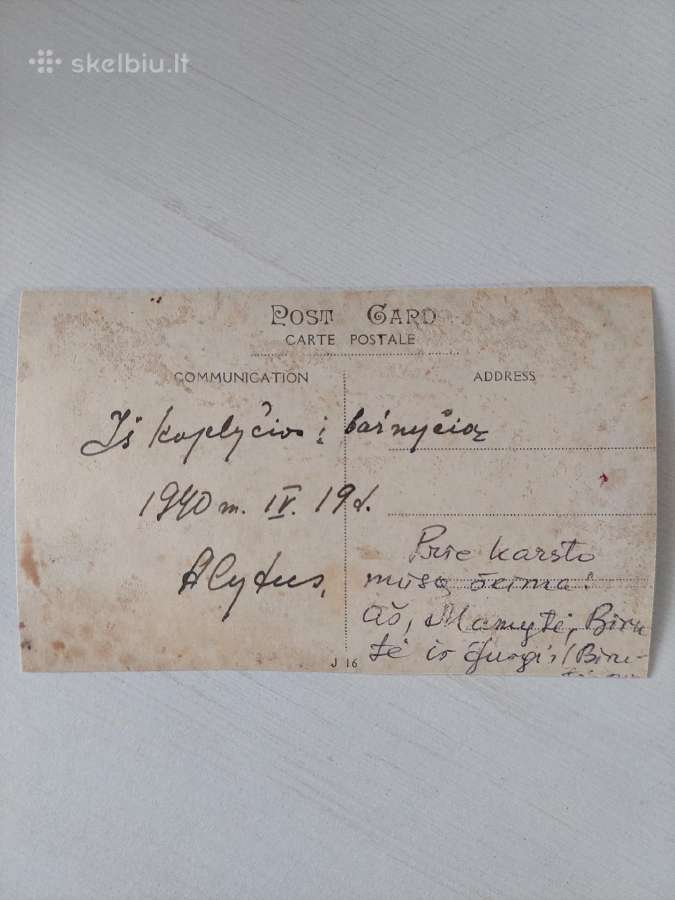 skelbiu.lt
POST CARD
CARTE POSTALE
COMMUNICATION
ADDRESS
Iš koplyčios į bažnyčią
1940 m. IV. 19 d.
Alytus.
Prie karsto
mūsų šeima:
Aš, Mamytė, Biru
tė ir Jurgis (Biru-
J 16